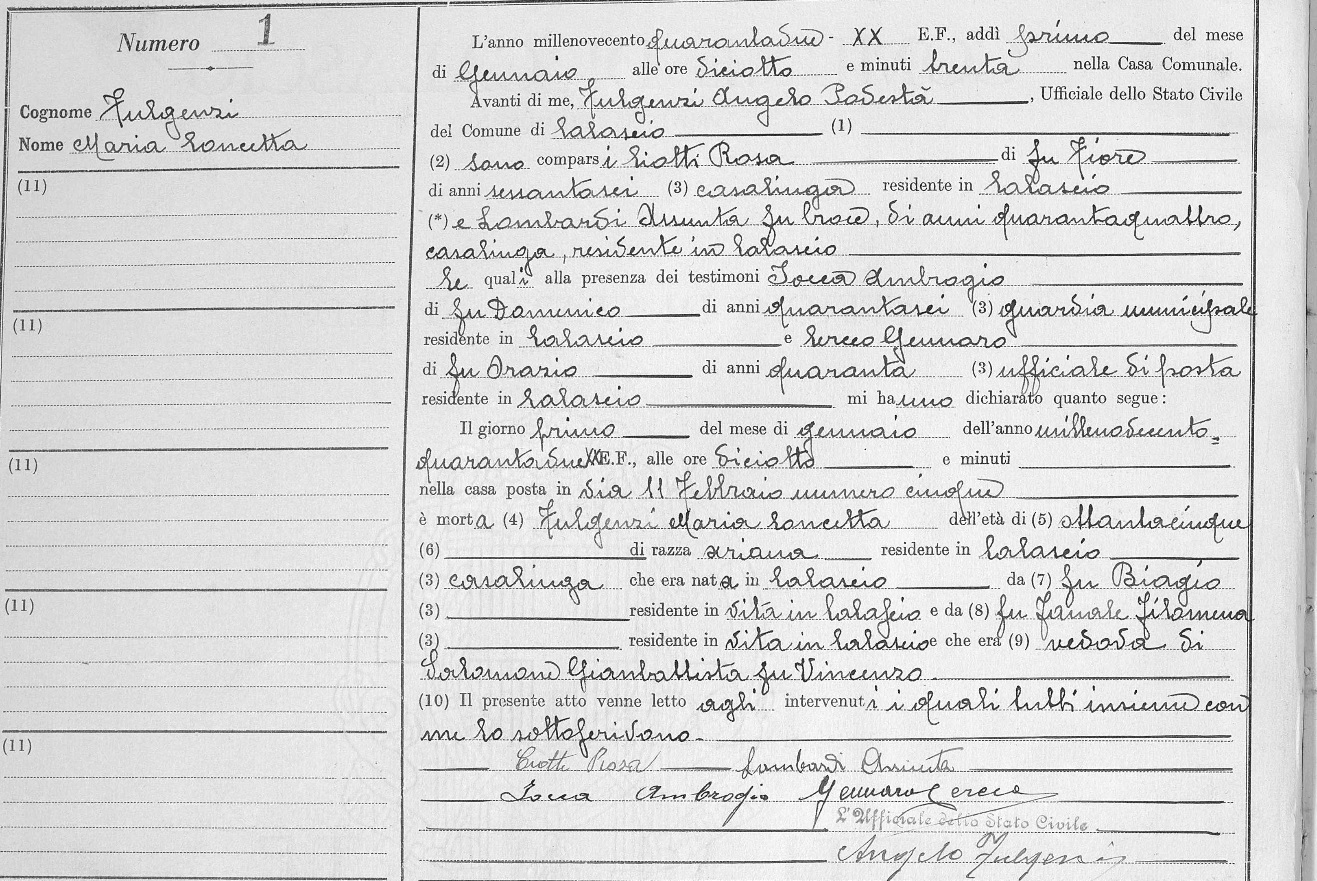 Numero 1
Cognome Fulgenzi
Nome Maria Concetta
(11)
(11)
(11)
(11)
(11)
L'anno millenovecento quarantadue - XX E.F., addì primo del mese
di Gennaio alle ore diciotto e minuti trenta nella Casa Comunale.
Avanti di me, Fulgenzi Angelo Podestà, Ufficiale dello Stato Civile
del Comune di Calascio (1)
(2) sono comparsi Ciotti Rosa di fu Fiore
di anni sessantasei (3) casalinga residente in Calascio
(*) e Lombardi Assunta fu Croce, di anni quarantaquattro,
casalinga, residente in Calascio
Le quali alla presenza dei testimoni Iocca Ambrogio
di fu Domenico di anni quarantasei (3) guardia municipale
residente in Calascio e Cerceo Gennaro
di fu Orazio di anni quaranta (3) ufficiale di posta
residente in Calascio mi hanno dichiarato quanto segue:
Il giorno primo del mese di gennaio dell'anno millenovecento-
quarantadue XX E.F., alle ore diciotto e minuti
nella casa posta in via 11 Febbraio numero cinque
è morta (4) Fulgenzi Maria Concetta dell'età di (5) ottantacinque
(6) di razza ariana residente in Calascio
(3) casalinga che era nata in Calascio da (7) fu Biagio
(3) residente in vita in Calascio e da (8) fu Filomena
(3) residente in vita in Calascio e che era (9) vedova di
Salomone Gianbattista fu Vincenzo
(10) Il presente atto venne letto agli intervenuti i quali tutti insieme con
me lo sottoscrivono.
Ciotti Rosa Lombardi Assunta
Iocca Ambrogio Gennaro Cerceo
L'Ufficiale dello Stato Civile
Angelo Fulgenzi